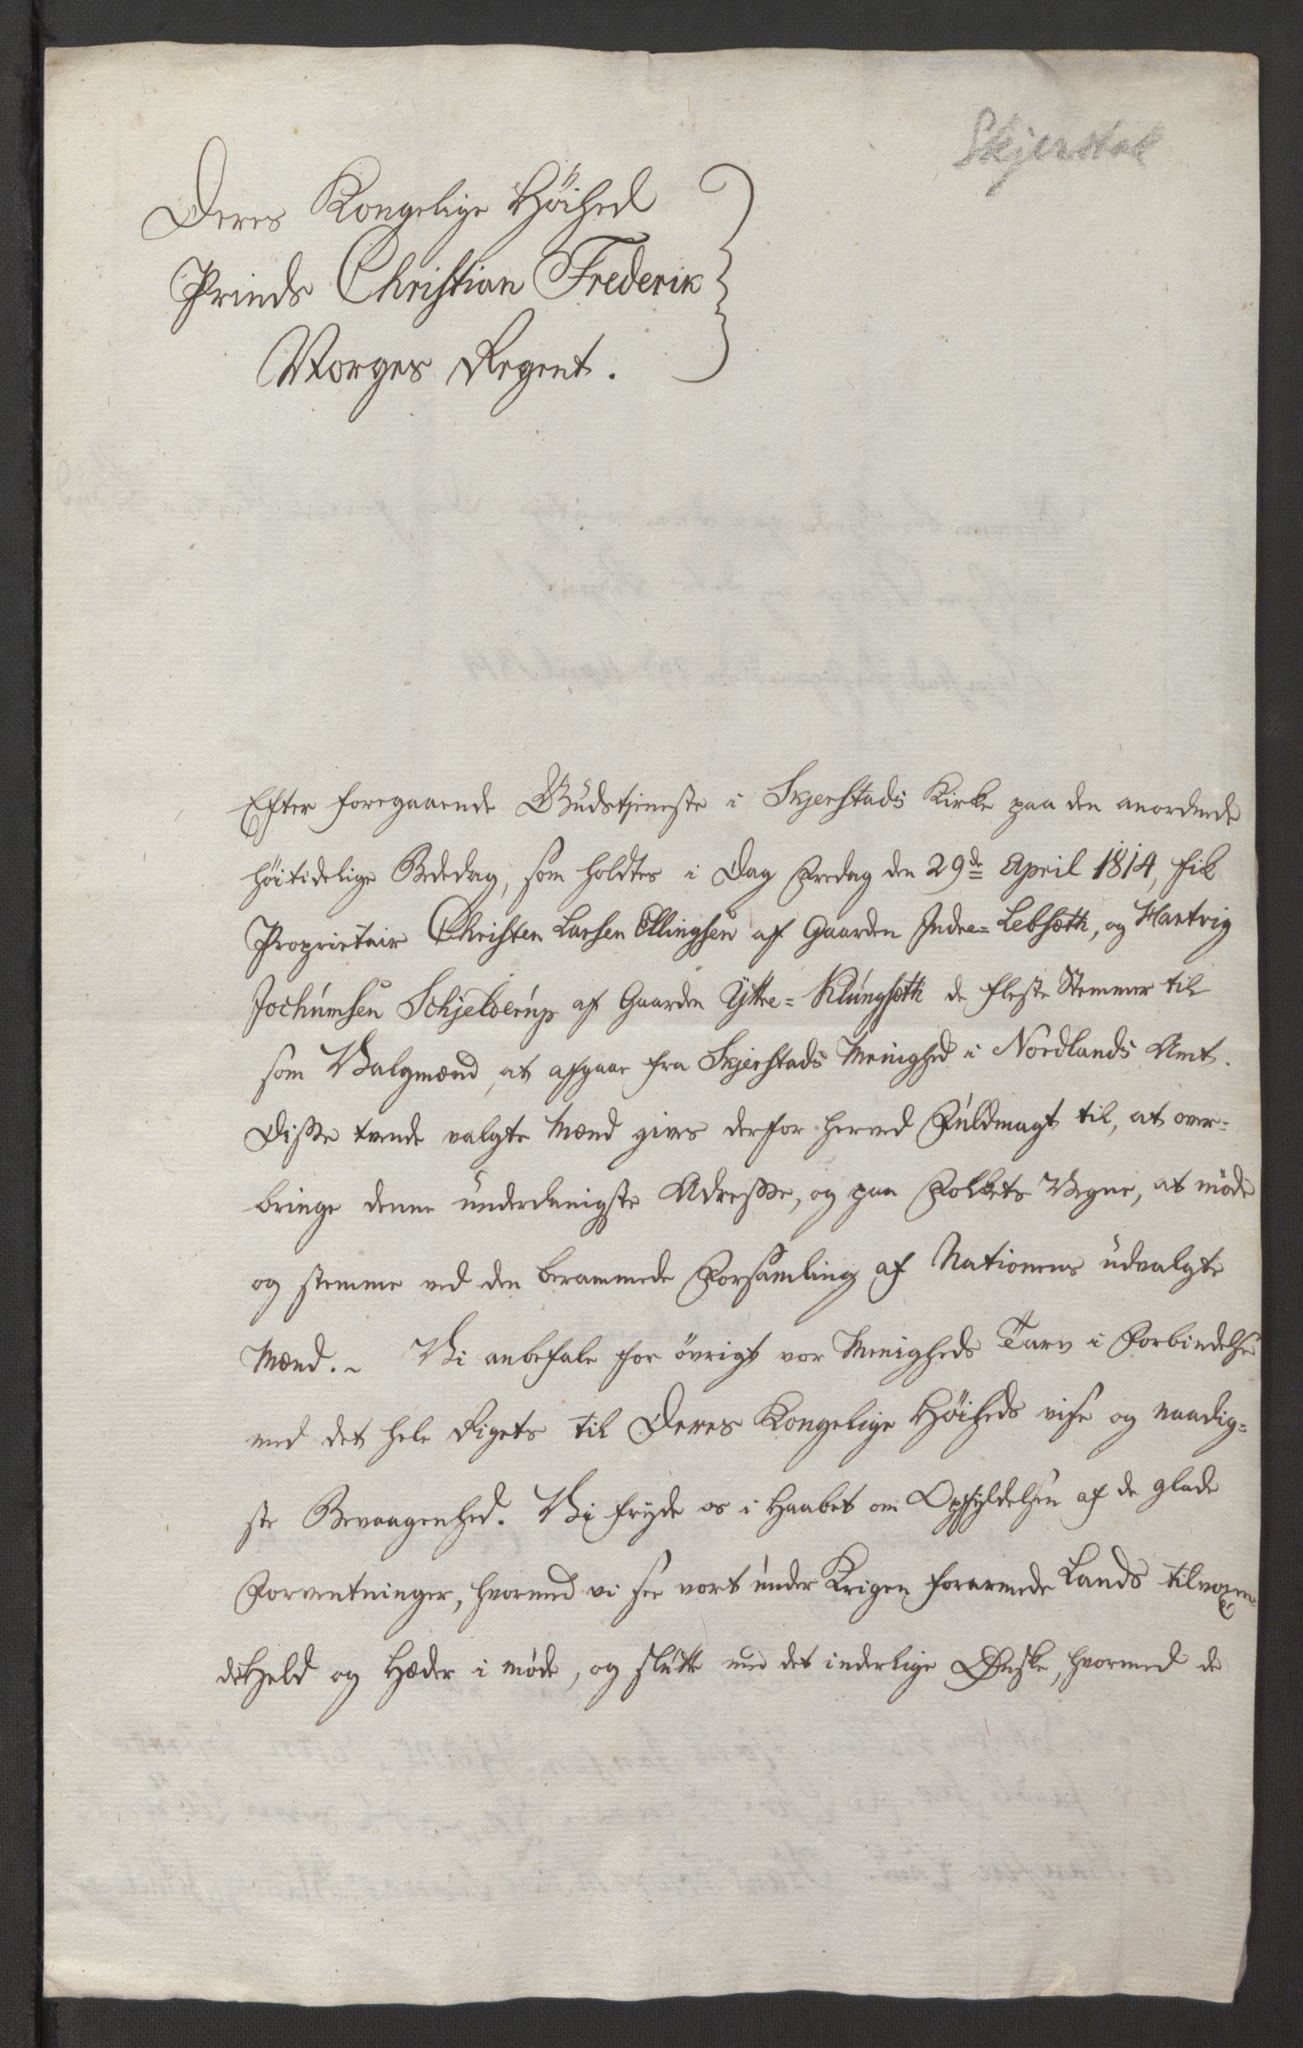 Skjerstad
Deres Kongelige Höihed
Prinds Christian Frederik
Norges Regent.
Efter foregaaende Gudstjeneste i Skjerstads Kirke paa den anordnede
höitidelige Bededag, som holdtes i Dag Fredag den 29de April 1814, fik
Proprietair Christen Larsen Ellingsen af Gaarden Indre=Lebsøth, og Hartvig
Jochumsen Schjelderup af Gaarden Yttre=Klungsøth de fleste Stemmer til
som Valgmænd, at afgaae fra Skjerstads Menighed i Nordlands Amt.
Disse tvende valgte Mænd gives derfor herved Fuldmagt til, at over=
bringe denne underdanigste Adresse, og paa Folkets Vegne, at möde
og stemme ved den berammede Forsamling af Nationens udvalgte
Mænd. – Vi anbefale for övrigt vor Menigheds Tarv i Forbindelse
med det hele Rigets til Deres Kongelige Höiheds vise og naadig=
ste Bevaagenhed. Vi fryde os i Haabet om Opfyldelsen af de glade
Forventninger, hvormed vi see vort under Krigen forarmede Lands tilvoxen=
de Held og Hæder i möde, og slutte med det inderlige Ønske, hvormed de